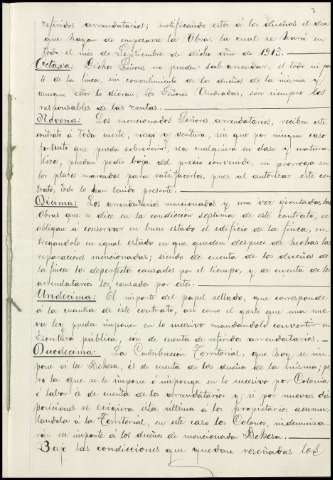 referidos arrendatarios; notificando estos á los dueños el dia
que hayan de empezarse la Obra, la cual se hará en
todo el mes de Septiembre de dicho año de 1912.
Octava: Dichos Señores no pueden sub-arrendar, el todo ni par
te de la finca, sin consentimiento de los dueños de la misma y
aunque estos lo dieran, los Señores Andradas, son siempre los
responsables de las rentas.
Novena: Los mencionados Señores arrendatarios, reciben este
contrato á todo evento, riesgo y ventura, sin que por ningun caso
fortuito que pueda sobrevenir, sea cualquiera su clase y natura
leza, puedan pedir baja del precio convenido, ni prorroga en
los plazos marcados para satisfacerlos, pues al autorizar este con
trato, todo lo han tenido presente.
Décima: Los arrendatarios mencionados y una vez ejecutadas las
Obras que se dice en la condicion septima de este contrato, se
obligan á conservar en buen estado el edificio de la finca, en
tregandolo en igual estado en que queden despues de hechas las
reparaciones mencionadas; siendo de cuenta de los dueños de
la finca los desperfectos causados por el tiempo, y de cuenta de los
arrendatarios los causados por estos.
Undécima: El importe del papel sellado, que corresponde
á la cuantia de este contrato, asi como el gasto que una nue
va ley pueda imponer en lo sucesivo mandandolo convertir
Escritura pública, son de cuenta de referidos arrendatarios.
Duodécima: La Contribucion Territorial, que hoy se im
pone á la Dehesa, és de cuenta de los dueños de la misma; pe
ro la que se le impone é imponga en lo sucesivo por Colonia
ó labor és de cuenta de los arrendatarios y si por nuevas dis
posiciones se exigiera esta última á los propietarios acumu
landola á la Territorial, en este caso los Colonos, indemniza
rán su importe á los dueños de mencionada Dehesa.
Bajo las condiciones que quedan reseñadas los